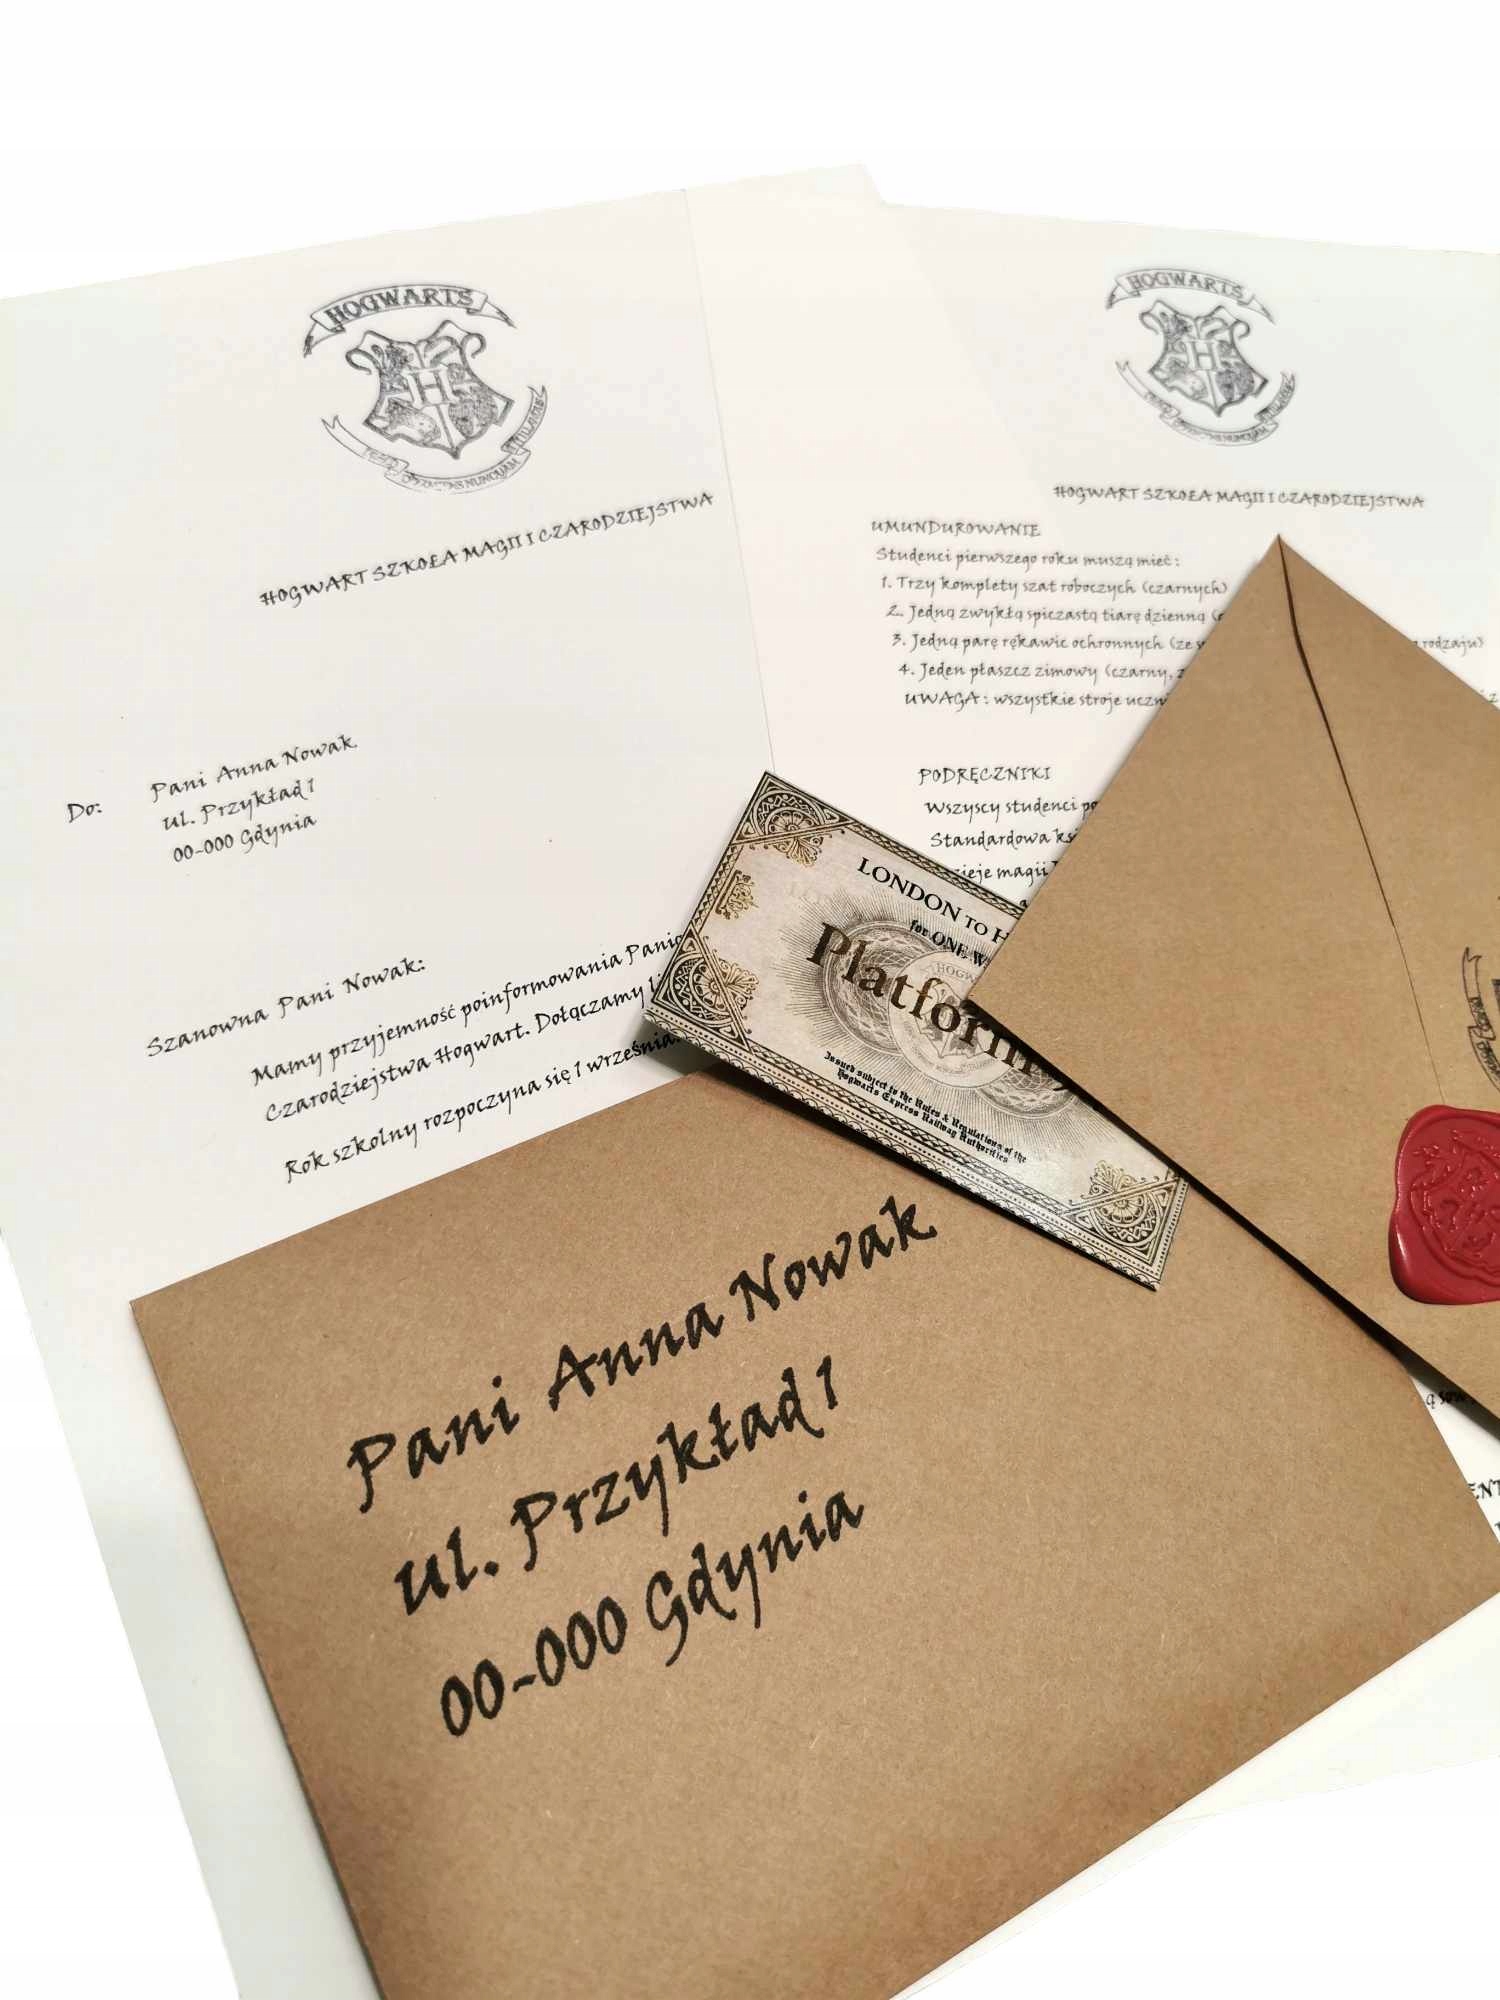 HOGWARTS
HOGWART SZKOŁA MAGII I CZARODZIEJSTWA
Do:
Pani Anna Nowak
ul. Przykład 1
00-000 Gdynia
Szanowna Pani Nowak:
Mamy przyjemność poinformowania Panią
Czarodziejstwa Hogwart. Dołączamy
Rok szkolny rozpoczyna się 1 września.
HOGWARTS
NUNQUAM
HOGWART SZKOŁA MAGII I CZARODZIEJSTWA
UMUNDUROWANIE
Studenci pierwszego roku muszą mieć:
1. Trzy komplety szat roboczych (czarnych)
2. Jedną zwykłą spiczastą tiarę dzienną
3. Jedną parę rękawic ochronnych (ze rodzaju)
4. Jeden płaszcz zimowy (czarny,
UWAGA: wszystkie stroje
PODRĘCZNIKI
Wszyscy studenci
Standardowa
magii
LONDON TO
for ONE
Platform
Issued subject to the Rules & Regulations of the
Hogwarts Express Railway Authorities
Pani Anna Nowak
ul. Przykład 1
00-000 Gdynia